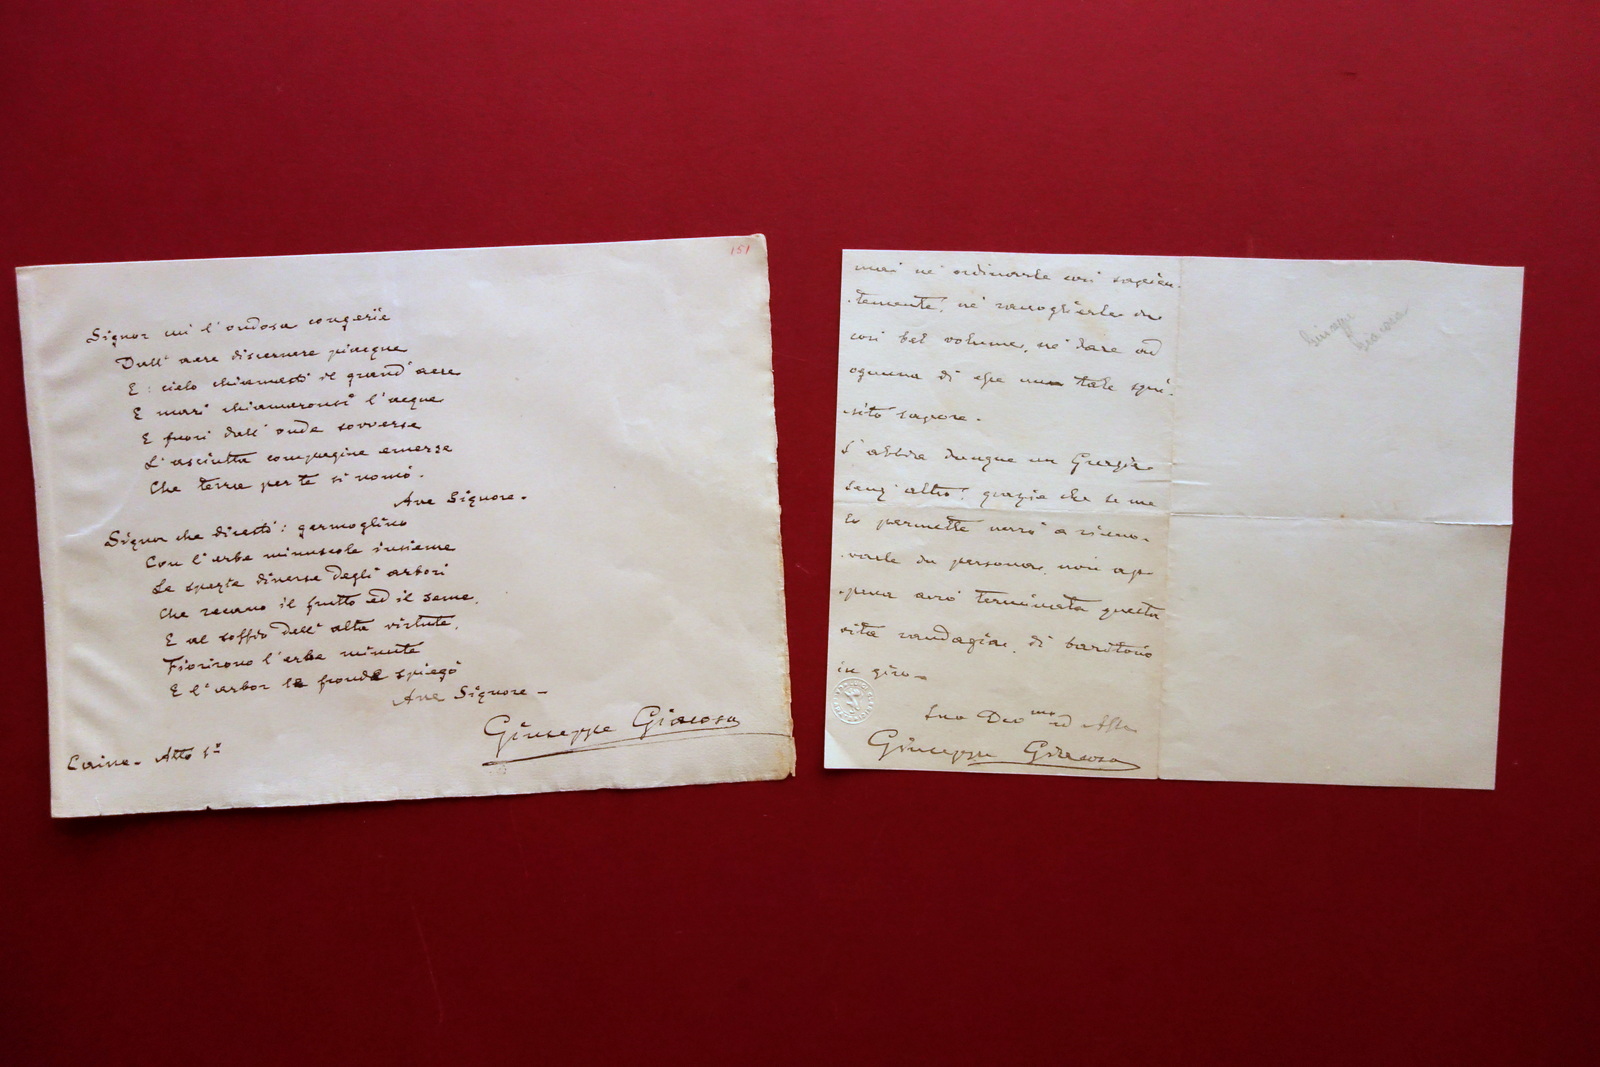 151
Signor cui l'ondosa congerie
Dall' aere discernere piacque
E: cielo chiamasti il grand' aere
E mari chiamaronsi l'acque
E fuori dall' onde sovverse
L'asciutta compagine emerse
Che terra per te si nomò.
Ave Signore -
Signor che dicesti: germoglino
Con l'erbe minuscole insieme
Le spezie diverse degli arbori
Che recano il frutto ed il seme,
E al soffio dell' alta virtute,
Fiorirono l'erbe minute
E l'arbor le fronde spiegò
Ave Signore -
Giuseppe Giacosa
Caino - Atto 1º
mai nè ordinarle così sapien-
-temente, nè raccoglierle in
così bel volume, nè dare ad
ognuna di esse un tale squi-
-sito sapore.
S'abbia dunque un Grazie
senz' altro, grazie che se me
lo permette verrò a rinno-
-varle in persona, non ap-
-pena avrò terminata questa
vita randagia, di baritono
in giro -
Suo Devmo ed Affmo
Giuseppe Giacosa
Giuseppe
Giacosa